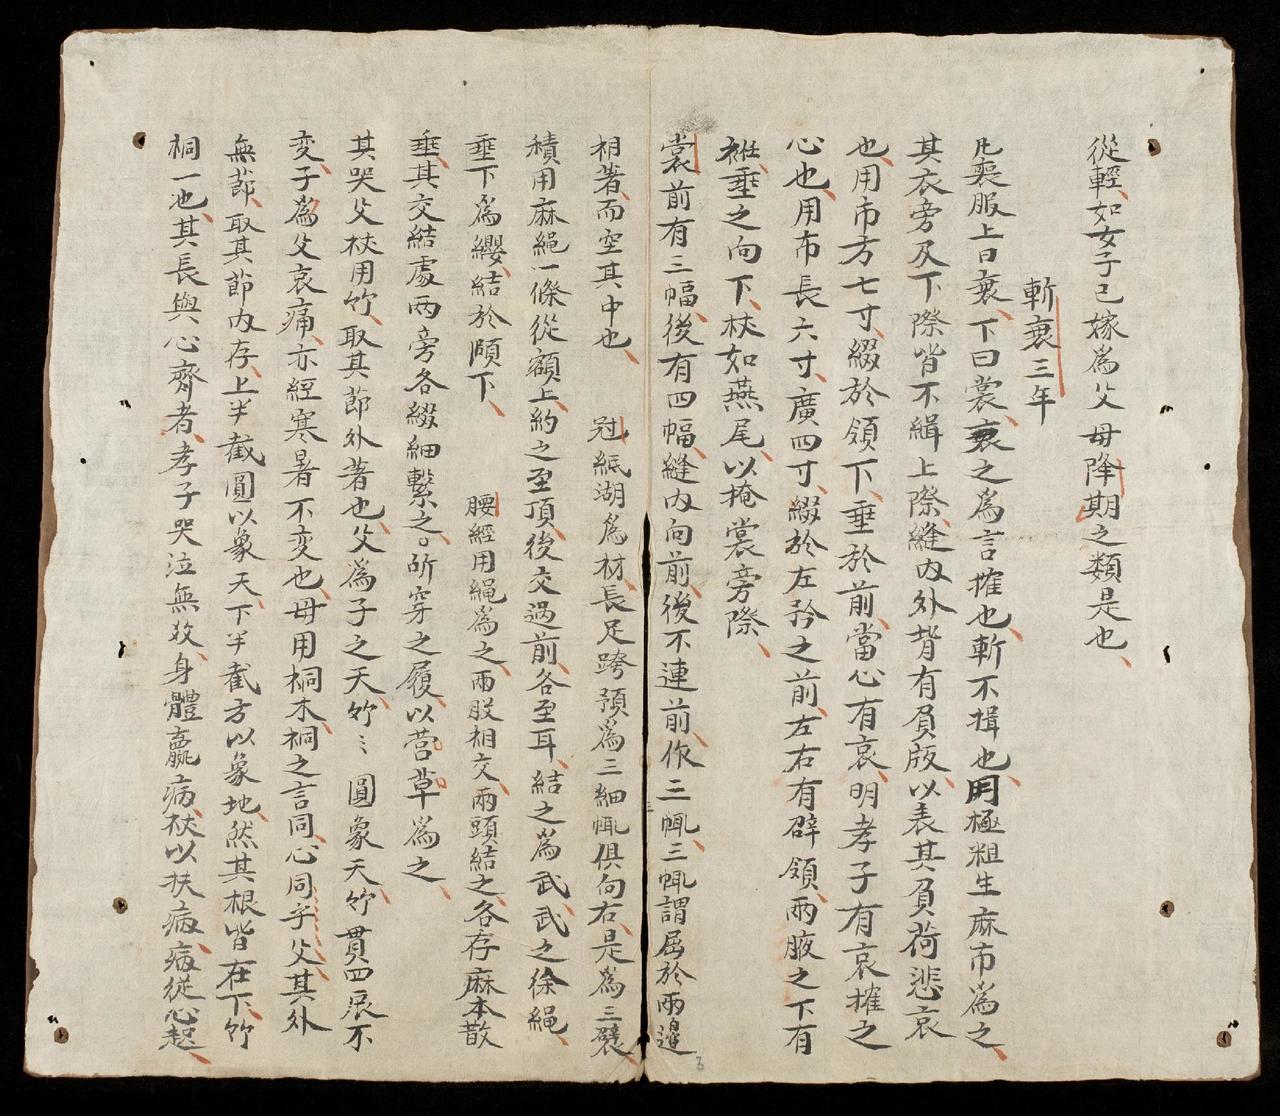 從輕如女子已嫁為父母降期之類是也
斬衰三年
凡喪服上曰衰下曰裳衰之為言摧也斬不揖也用極粗生麻布為之
其衣旁及下際皆不緝上際縫內外背有負版以表其負荷悲哀
也用布方七寸綴於領下垂於前當心有哀明孝子有哀摧之
心也用布長六寸廣四寸綴於左矜之前左右有辟領兩腋之下有
衽垂之向下狀如燕尾以掩裳旁際
裳前有三幅後有四幅縫內向前後不連前作三㡇三㡇謂屈於兩邊
相著而空其中也 冠紙湖為材長足跨預為三細㡇俱向右是為三襞
積用麻繩一條從額上約之至頂後交過前各至耳結之為武武之徐繩
垂下為纓結於頤下 腰絰用繩為之兩股相交兩頭結之各存麻本散
垂其交結處兩旁各綴細繫之所穿之履以菅草為之
其哭父杖用竹取其節外著也父為子之天竹〻圓象天竹貫四辰不
变子為父哀痛亦經寒暑不变也母用桐木桐之言同心同乎父其外
無節取其節內存上半截圓以象天下半截方以象地然其根皆在下竹
桐一也其長與心齊者孝子哭泣無效身體羸病杖以扶病病從心起